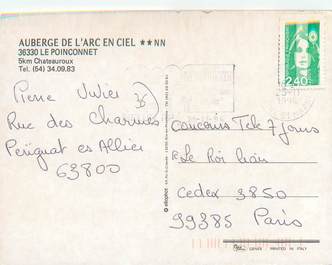 AUBERGE DE L'ARC EN CIEL **NN
36330 LE POINCONNET
5km Chateauroux
Tel. (54) 34.09.83
2,40
Pierre
Rue des Charmes
Perignat es Allier
63800
Concours Tele 7 Jours
Le Roi Lion
Cedex 3850
99385 Paris
PRINTED IN ITALY